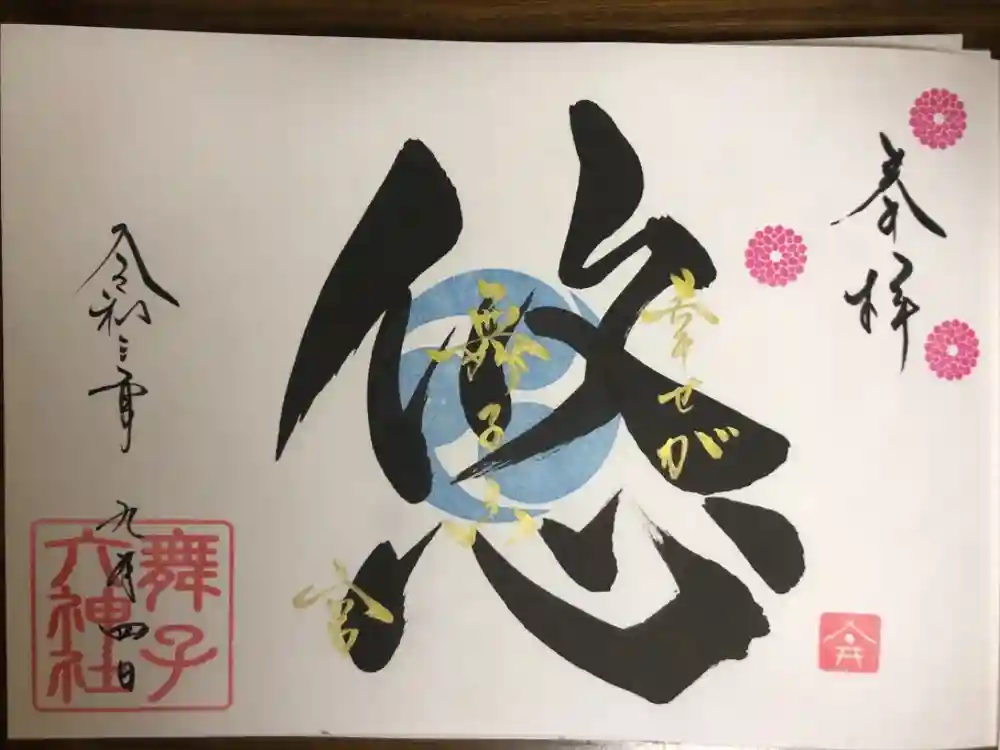 奉拝
幸せが
舞子
宮
悠
令和三年 九月四日
舞子
六神社